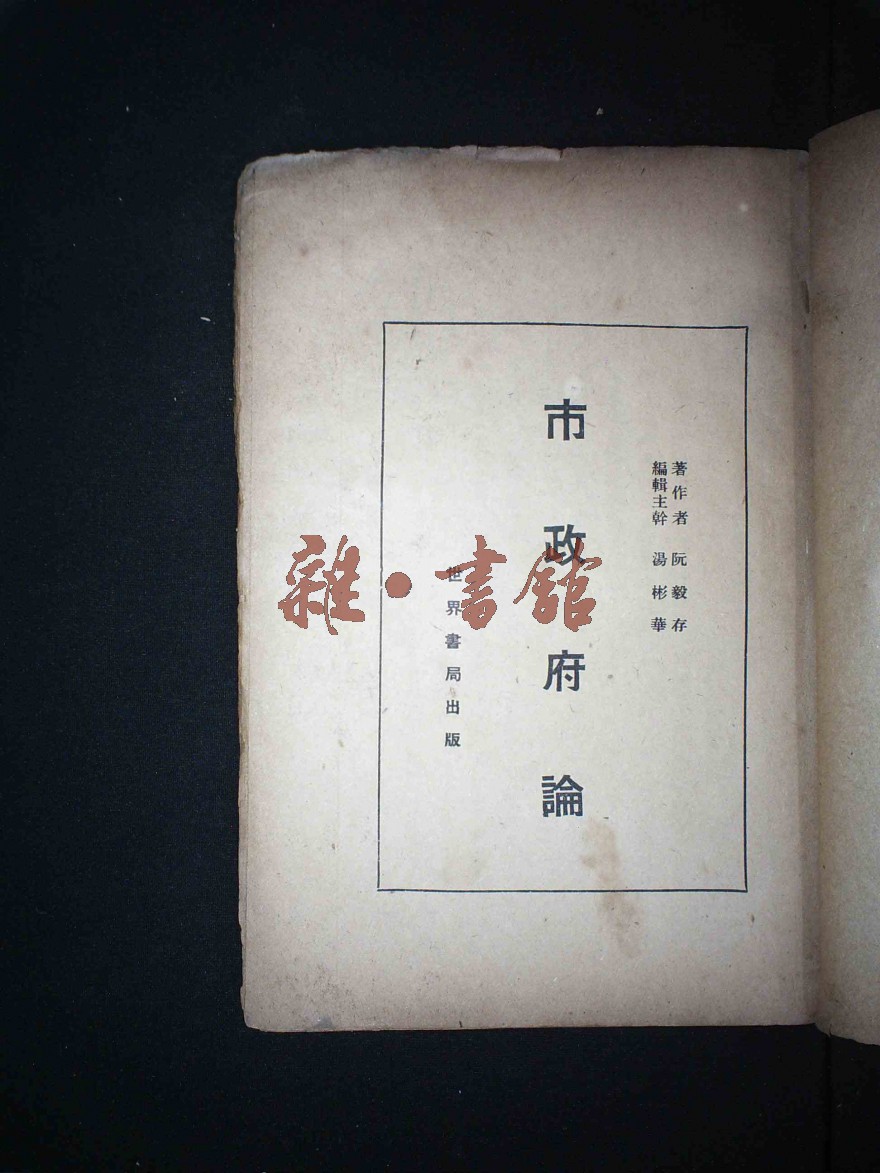 著作者 阮毅存
編輯主幹 湯彬華
市政府論
世界書局出版
雜·書館